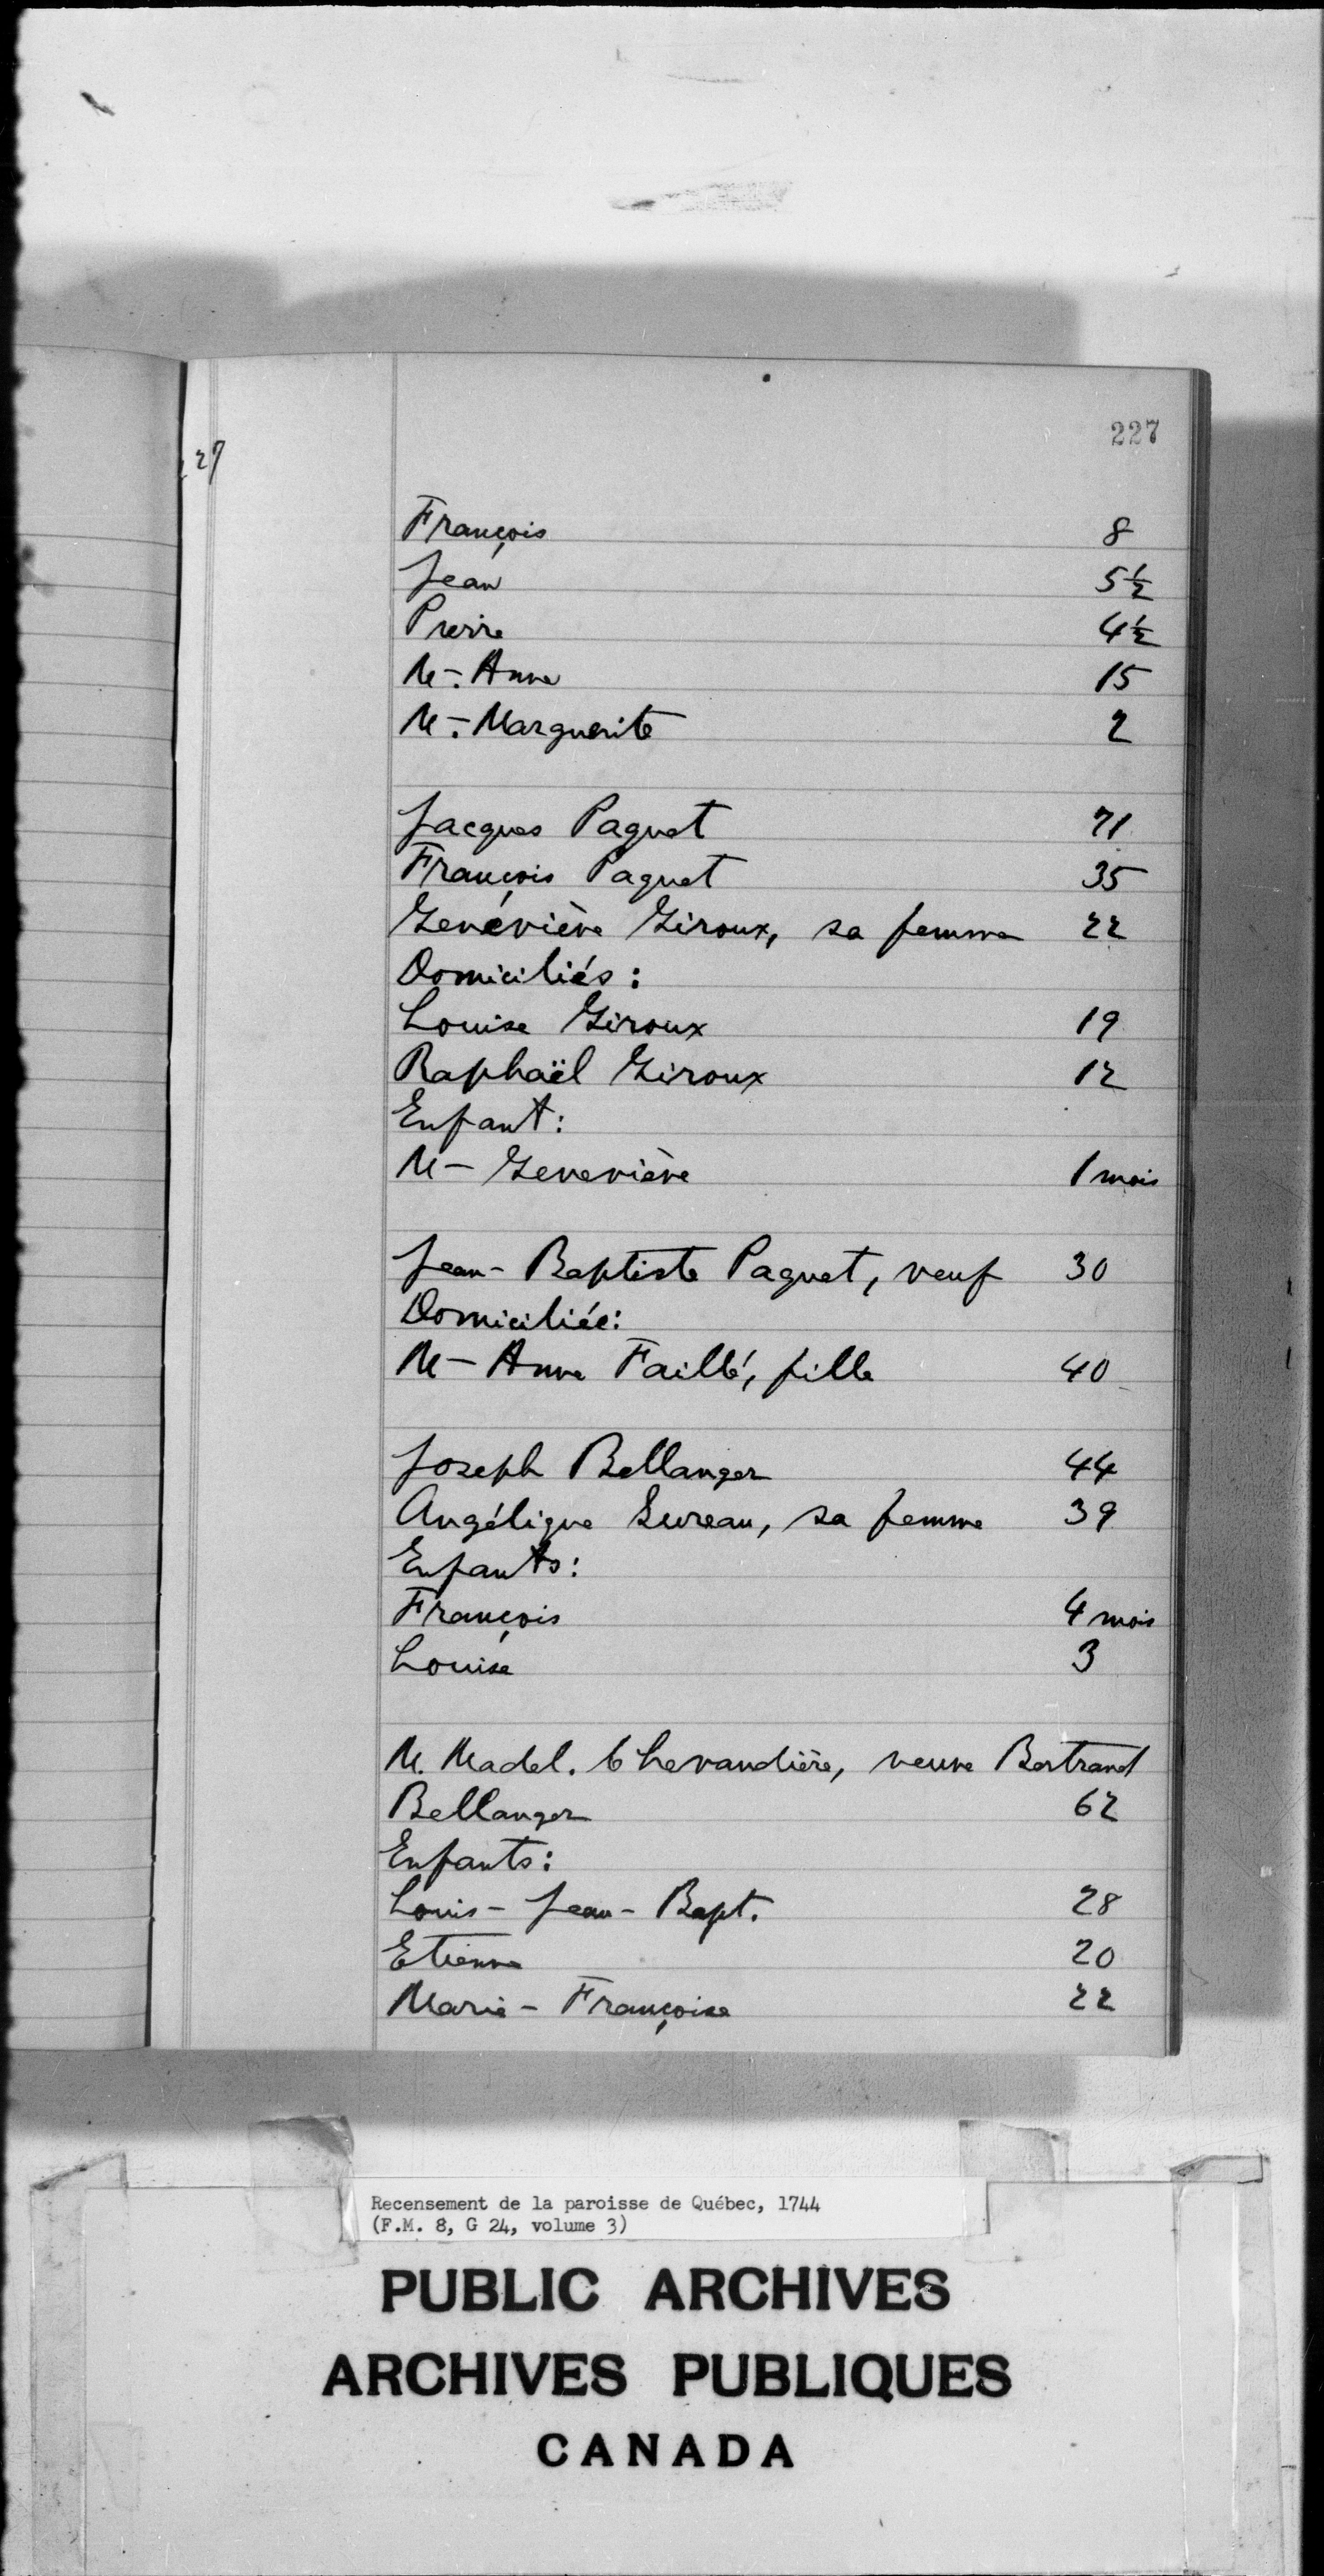 227
27
François 8
Jean 5½
Pierre 4½
M-. Anne 15
M-. Marguerite 2
Jacques Paquet 71
François Paquet 35
Genéviève Giroux, sa femme 22
Domiciliés:
Louise Giroux 19
Raphaël Giroux 12
Enfant:
M- Geneviève 1 mois
Jean-Baptiste Paquet, veuf 30
Domiciliée:
M- Anne Faillé, fille 40
Joseph Bellanger 44
Angélique Sureau, sa femme 39
Enfants:
François 4 mois
Louise 3
M. Madel. Chevaudière, veuve Bertrand
Bellanger 62
Enfants:
Louis-Jean-Bapt. 28
Etienne 20
Marie-Françoise 22
Recensement de la paroisse de Québec, 1744
(F.M. 8, G 24, volume 3)
PUBLIC ARCHIVES
ARCHIVES PUBLIQUES
CANADA